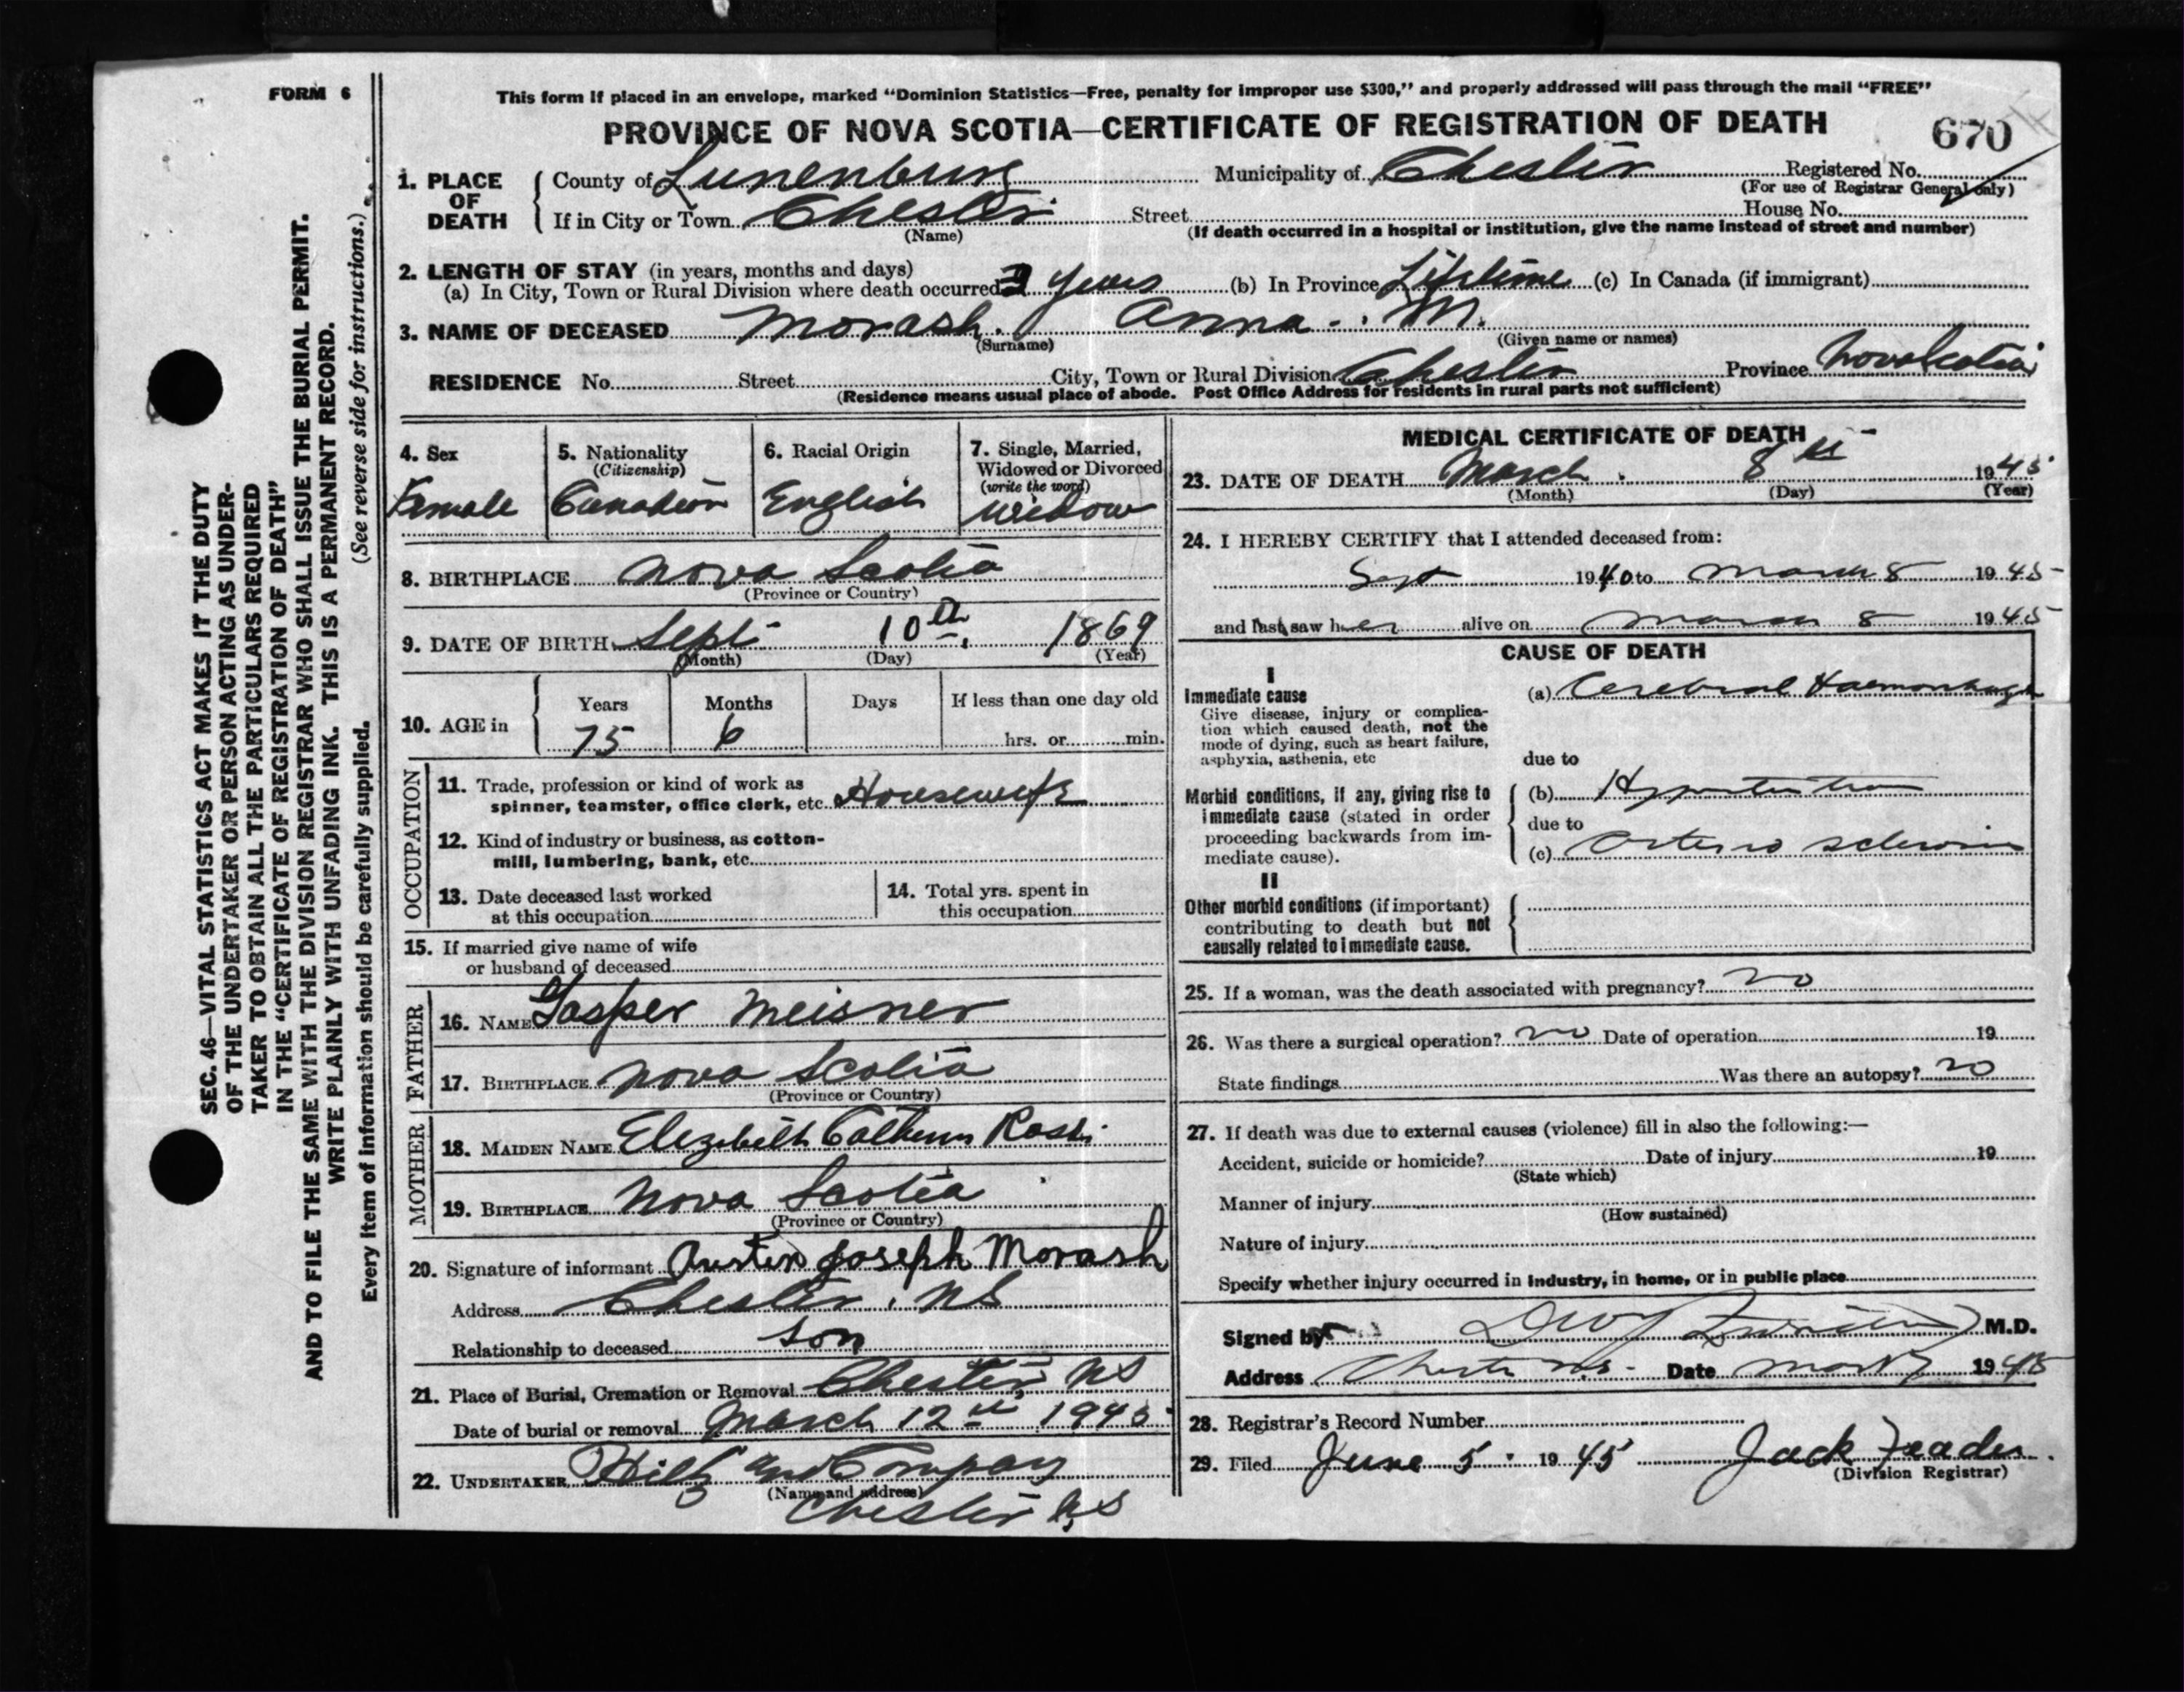 FORM 6
This form if placed in an envelope, marked “Dominion Statistics—Free, penalty for improper use $300,” and properly addressed will pass through the mail “FREE”
PROVINCE OF NOVA SCOTIA—CERTIFICATE OF REGISTRATION OF DEATH
670
1. PLACE OF DEATH
County of Lunenburg Municipality of Chester Registered No.
(For use of Registrar General only)
If in City or Town Chester Street House No.
(Name) (If death occurred in a hospital or institution, give the name instead of street and number)
2. LENGTH OF STAY (in years, months and days)
(a) In City, Town or Rural Division where death occurred years (b) In Province Lifetime (c) In Canada (if immigrant)
3. NAME OF DECEASED Morash. Anna. M.
(Surname) (Given name or names)
RESIDENCE No. Street City, Town or Rural Division Chester Province Nova Scotia
(Residence means usual place of abode. Post Office Address for residents in rural parts not sufficient)
4. Sex
Female
5. Nationality
(Citizenship)
Canadian
6. Racial Origin
English
7. Single, Married,
Widowed or Divorced
(write the word)
Widow
8. BIRTHPLACE Nova Scotia
(Province or Country)
9. DATE OF BIRTH Sept. 10th, 1869
(Month) (Day) (Year)
10. AGE in
Years Months Days If less than one day old
75 6 hrs. or min.
OCCUPATION
11. Trade, profession or kind of work as
spinner, teamster, office clerk, etc. Housewife
12. Kind of industry or business, as cotton-
mill, lumbering, bank, etc.
13. Date deceased last worked
at this occupation
14. Total yrs. spent in
this occupation
15. If married give name of wife
or husband of deceased
FATHER
16. NAME Gasper Meisner
17. BIRTHPLACE Nova Scotia
(Province or Country)
MOTHER
18. MAIDEN NAME Elizabeth Calhoun
19. BIRTHPLACE Nova Scotia
(Province or Country)
20. Signature of informant Austin Joseph Morash
Address Chester, NS
Relationship to deceased son
21. Place of Burial, Cremation or Removal Chester, NS
Date of burial or removal March 12th 1945
22. UNDERTAKER and Company
(Name and address)
Chester NS
MEDICAL CERTIFICATE OF DEATH
23. DATE OF DEATH March 8th 1945
(Month) (Day) (Year)
24. I HEREBY CERTIFY that I attended deceased from:
Sept 1940 to March 8 1945
and last saw her alive on March 8 1945
CAUSE OF DEATH
I
Immediate cause
Give disease, injury or complica-
tion which caused death, not the
mode of dying, such as heart failure,
asphyxia, asthenia, etc
(a) Cerebral Haemorrhage
due to
Morbid conditions, if any, giving rise to
immediate cause (stated in order
proceeding backwards from im-
mediate cause).
(b) Hypertension
due to
(c) Arterio sclerosis
II
Other morbid conditions (if important)
contributing to death but not
causally related to immediate cause.
25. If a woman, was the death associated with pregnancy? no
26. Was there a surgical operation? no Date of operation 19
State findings Was there an autopsy? no
27. If death was due to external causes (violence) fill in also the following:—
Accident, suicide or homicide? Date of injury 19
(State which)
Manner of injury
(How sustained)
Nature of injury
Specify whether injury occurred in industry, in home, or in public place
Signed by M.D.
Address Chester N.S. Date 1945
28. Registrar's Record Number
29. Filed June 5. 1945 Jack
(Division Registrar)
SEC. 46—VITAL STATISTICS ACT MAKES IT THE DUTY
OF THE UNDERTAKER OR PERSON ACTING AS UNDER-
TAKER TO OBTAIN ALL THE PARTICULARS REQUIRED
IN THE “CERTIFICATE OF REGISTRATION OF DEATH”
AND TO FILE THE SAME WITH THE DIVISION REGISTRAR WHO SHALL ISSUE THE BURIAL PERMIT.
WRITE PLAINLY WITH UNFADING INK. THIS IS A PERMANENT RECORD.
Every item of information should be carefully supplied. (See reverse side for instructions.)